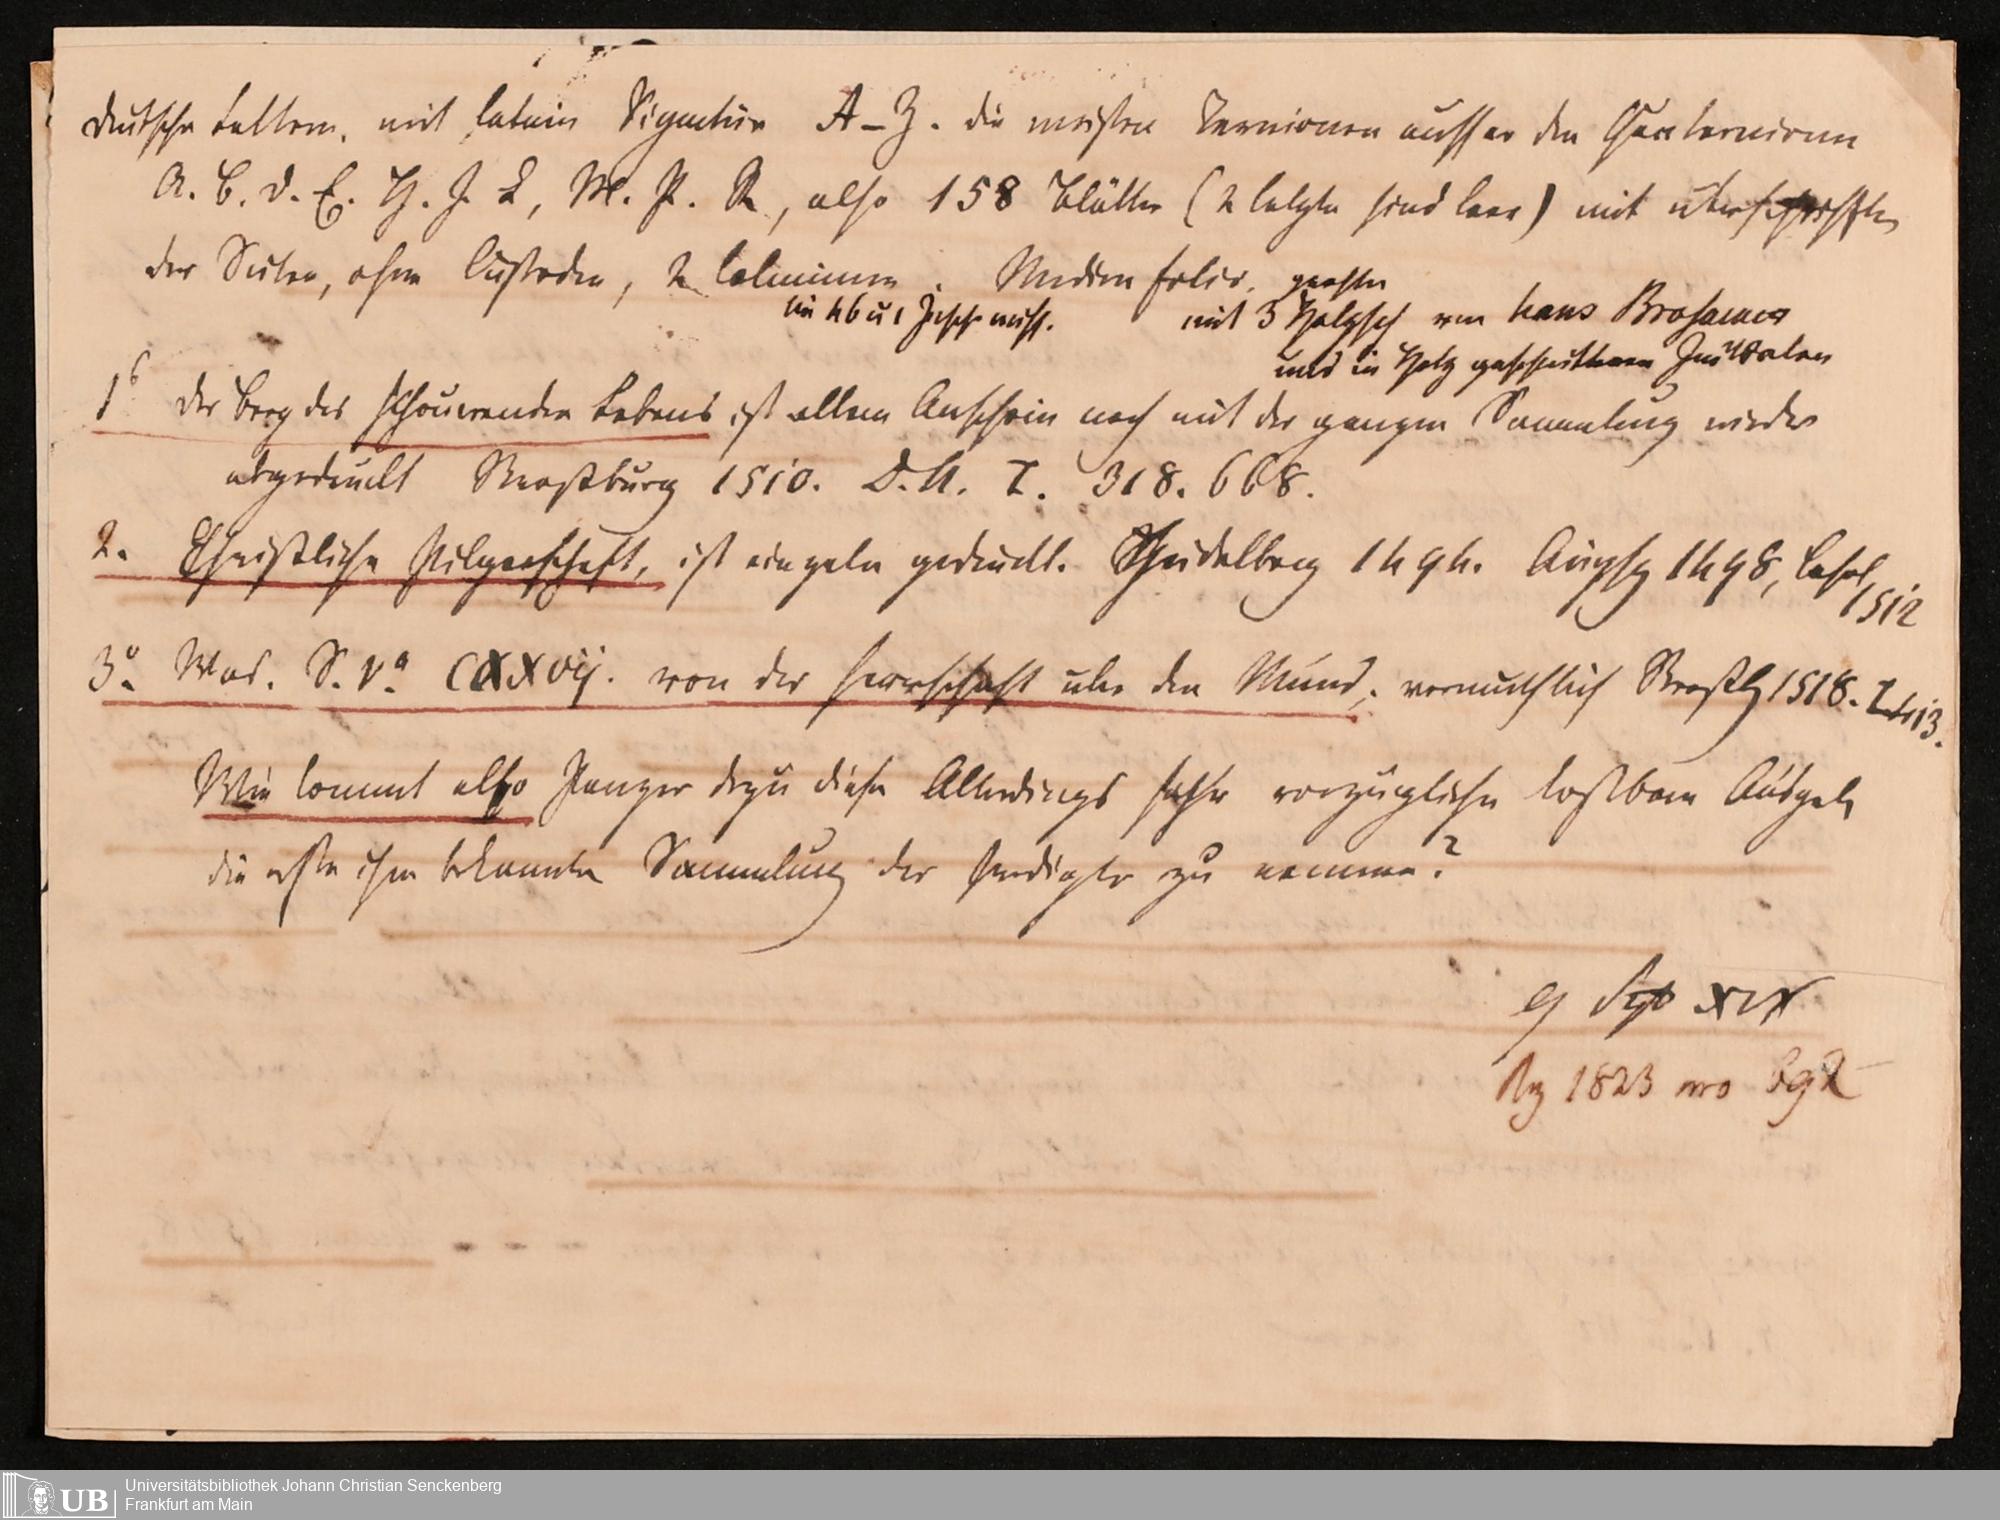 deutsche Lettern, mit latein Signatur A–Z. die meisten Ternionen ausser den Quaternionen
A. B. D. E. H. J. L, M. P. R, also 158 Blätter (2 letzte sind leer) mit überschriften
der Seiten, ohne Custoden, 2 Columnen. Medien folio. grosser
mit 3 Holzsch von hans Brosamer
und in Holz geschnittenen Initialen
1° der berg des schouwenden Lebens ist allem Anschein nach mit der ganzen Sammlung wieder
abgedruckt Strassburg 1510. D.A. I. 318. 668.
2. Christliche Pilgerschaft, ist einzeln gedruckt. Heidelberg 1494. Augsp 1498, basel
1512
3° S. V° CXXVII. von der herrschaft uber den Mund, vermuthlich Strassb 1518.
Wie kommt also Panzer dazu diese Allerdings sehr vorzügliche kostbare Ausgabe
die erste ihm bekannte Sammlung der Predigte zu nennen?
9 Sept XIX
1823 No
Universitätsbibliothek Johann Christian Senckenberg
UB Frankfurt am Main